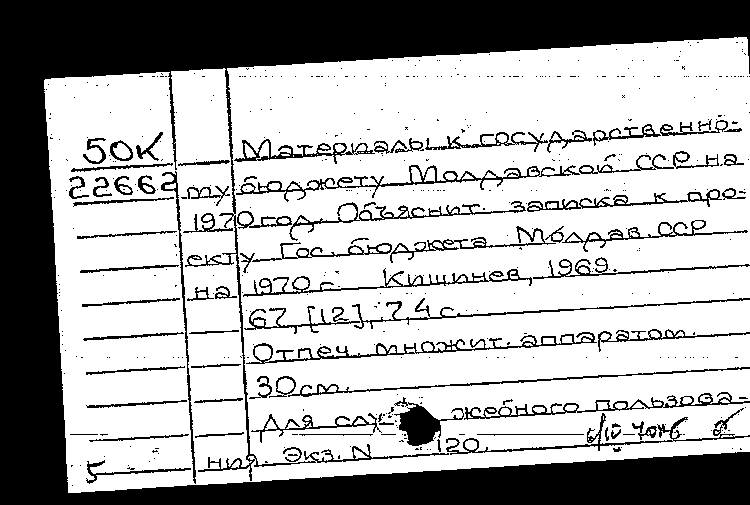 50К Материалы к государственно-
22662 му бюджету Молдавской ССР на
1970 год. Объяснит. записка к про-
екту Гос. бюджета Молдав. ССР
на 1970 г. Кишинев, 1969.
67, [12], 7, 4 с.
Отпеч. множит. аппаратом.
30 см.
Для служебного пользова-
5 ния. Экз. N 120.